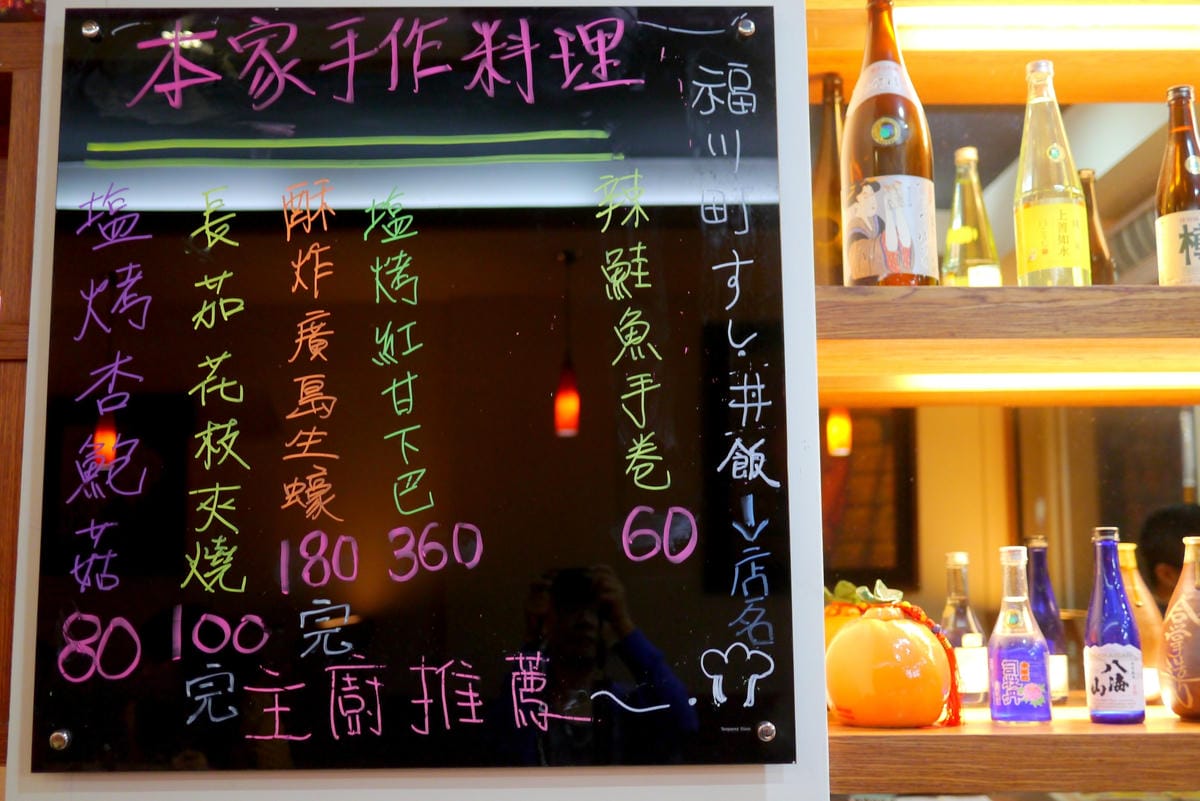 本家手作料理
福川町すし.丼飯↓店名
辣鮭魚手卷 60
塩烤紅甘下巴 360
酥炸廣島生蠔 180 完
長茄花枝夾燒 100 完
塩烤杏鮑菇 80
主廚推薦～.
上善如水
八海山